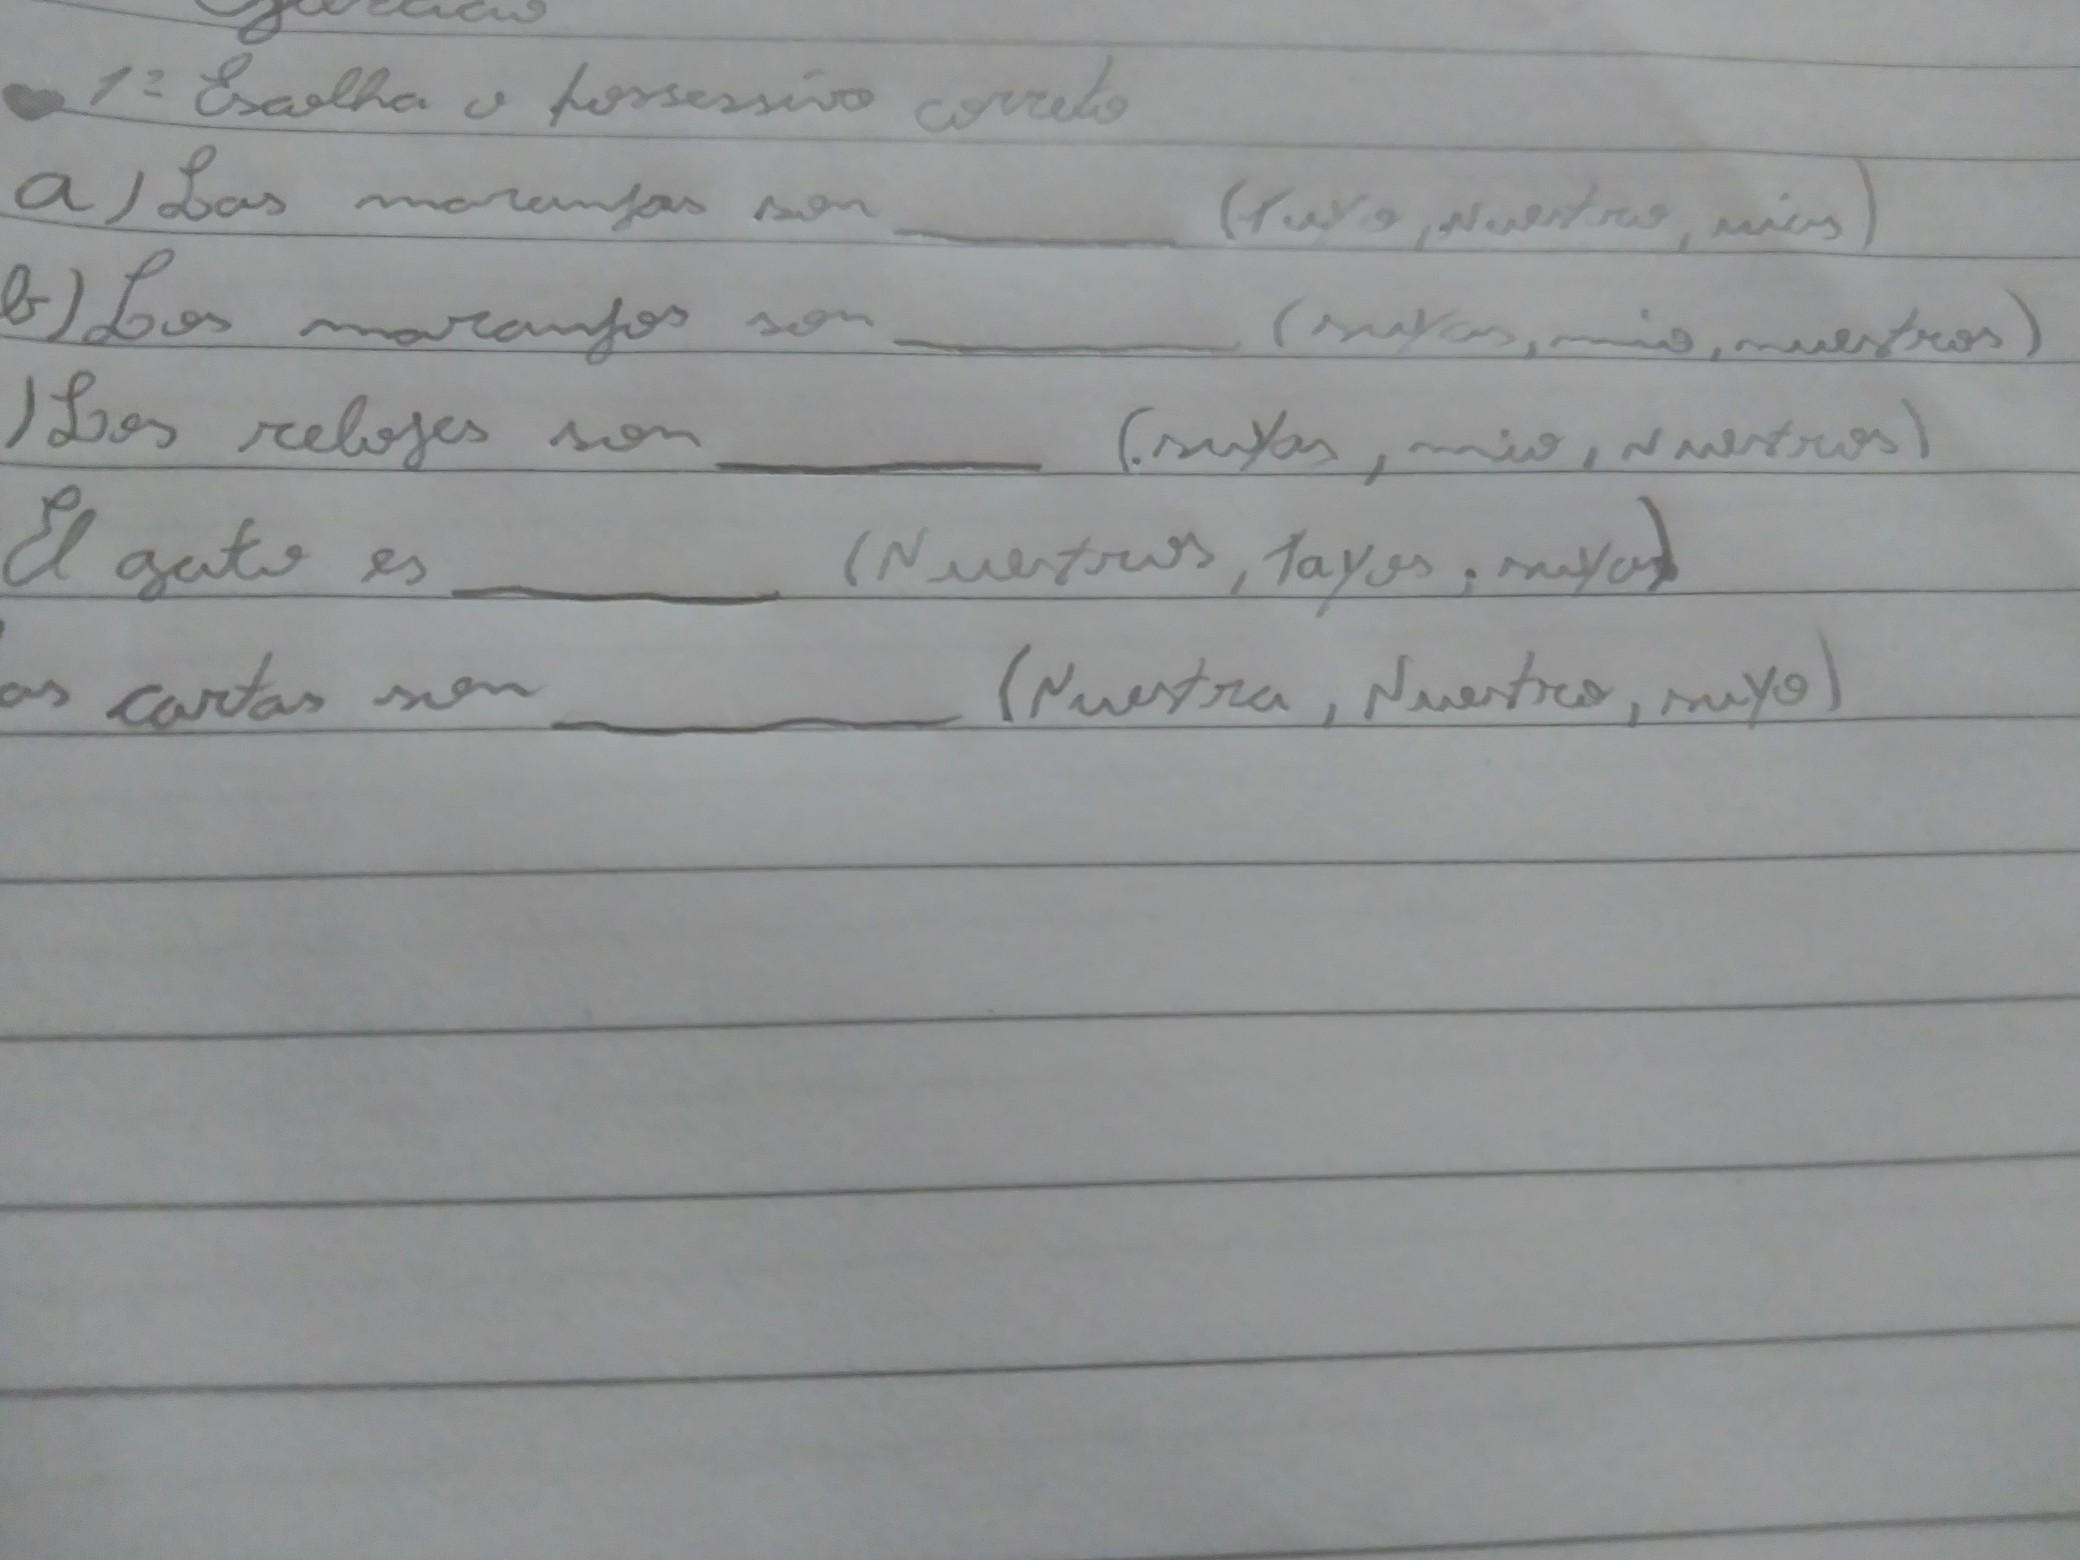 1º Escolha o possessivo correto
a) Las naranjas son ______ (tuyo, Nuestro, mias)
b) Los naranjos son ______ (suyas, mio, nuestros)
) Los relojes son ______ (suyas, mio, Nuestros)
El gato es ______ (Nuestros, Tayos, suyo)
as cartas son ______ (Nuestra, Nuestro, suyo)